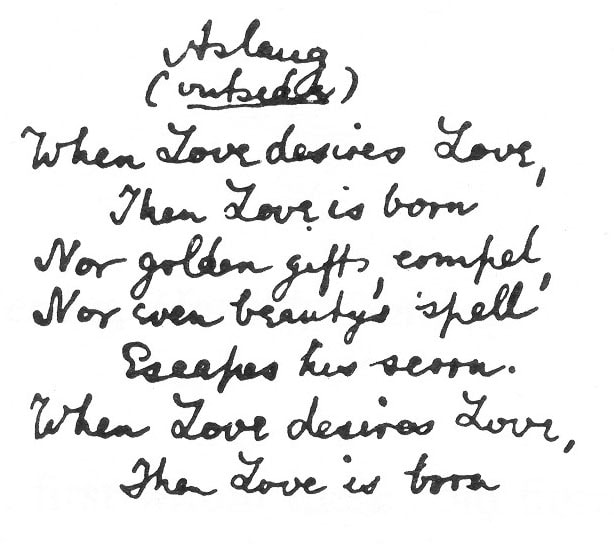 Aslaug
(outside)
When Love desires Love,
Then Love is born
Nor golden gifts, compel,
Nor even beauty's spell
Escapes his scorn.
When Love desires Love,
Then Love is born